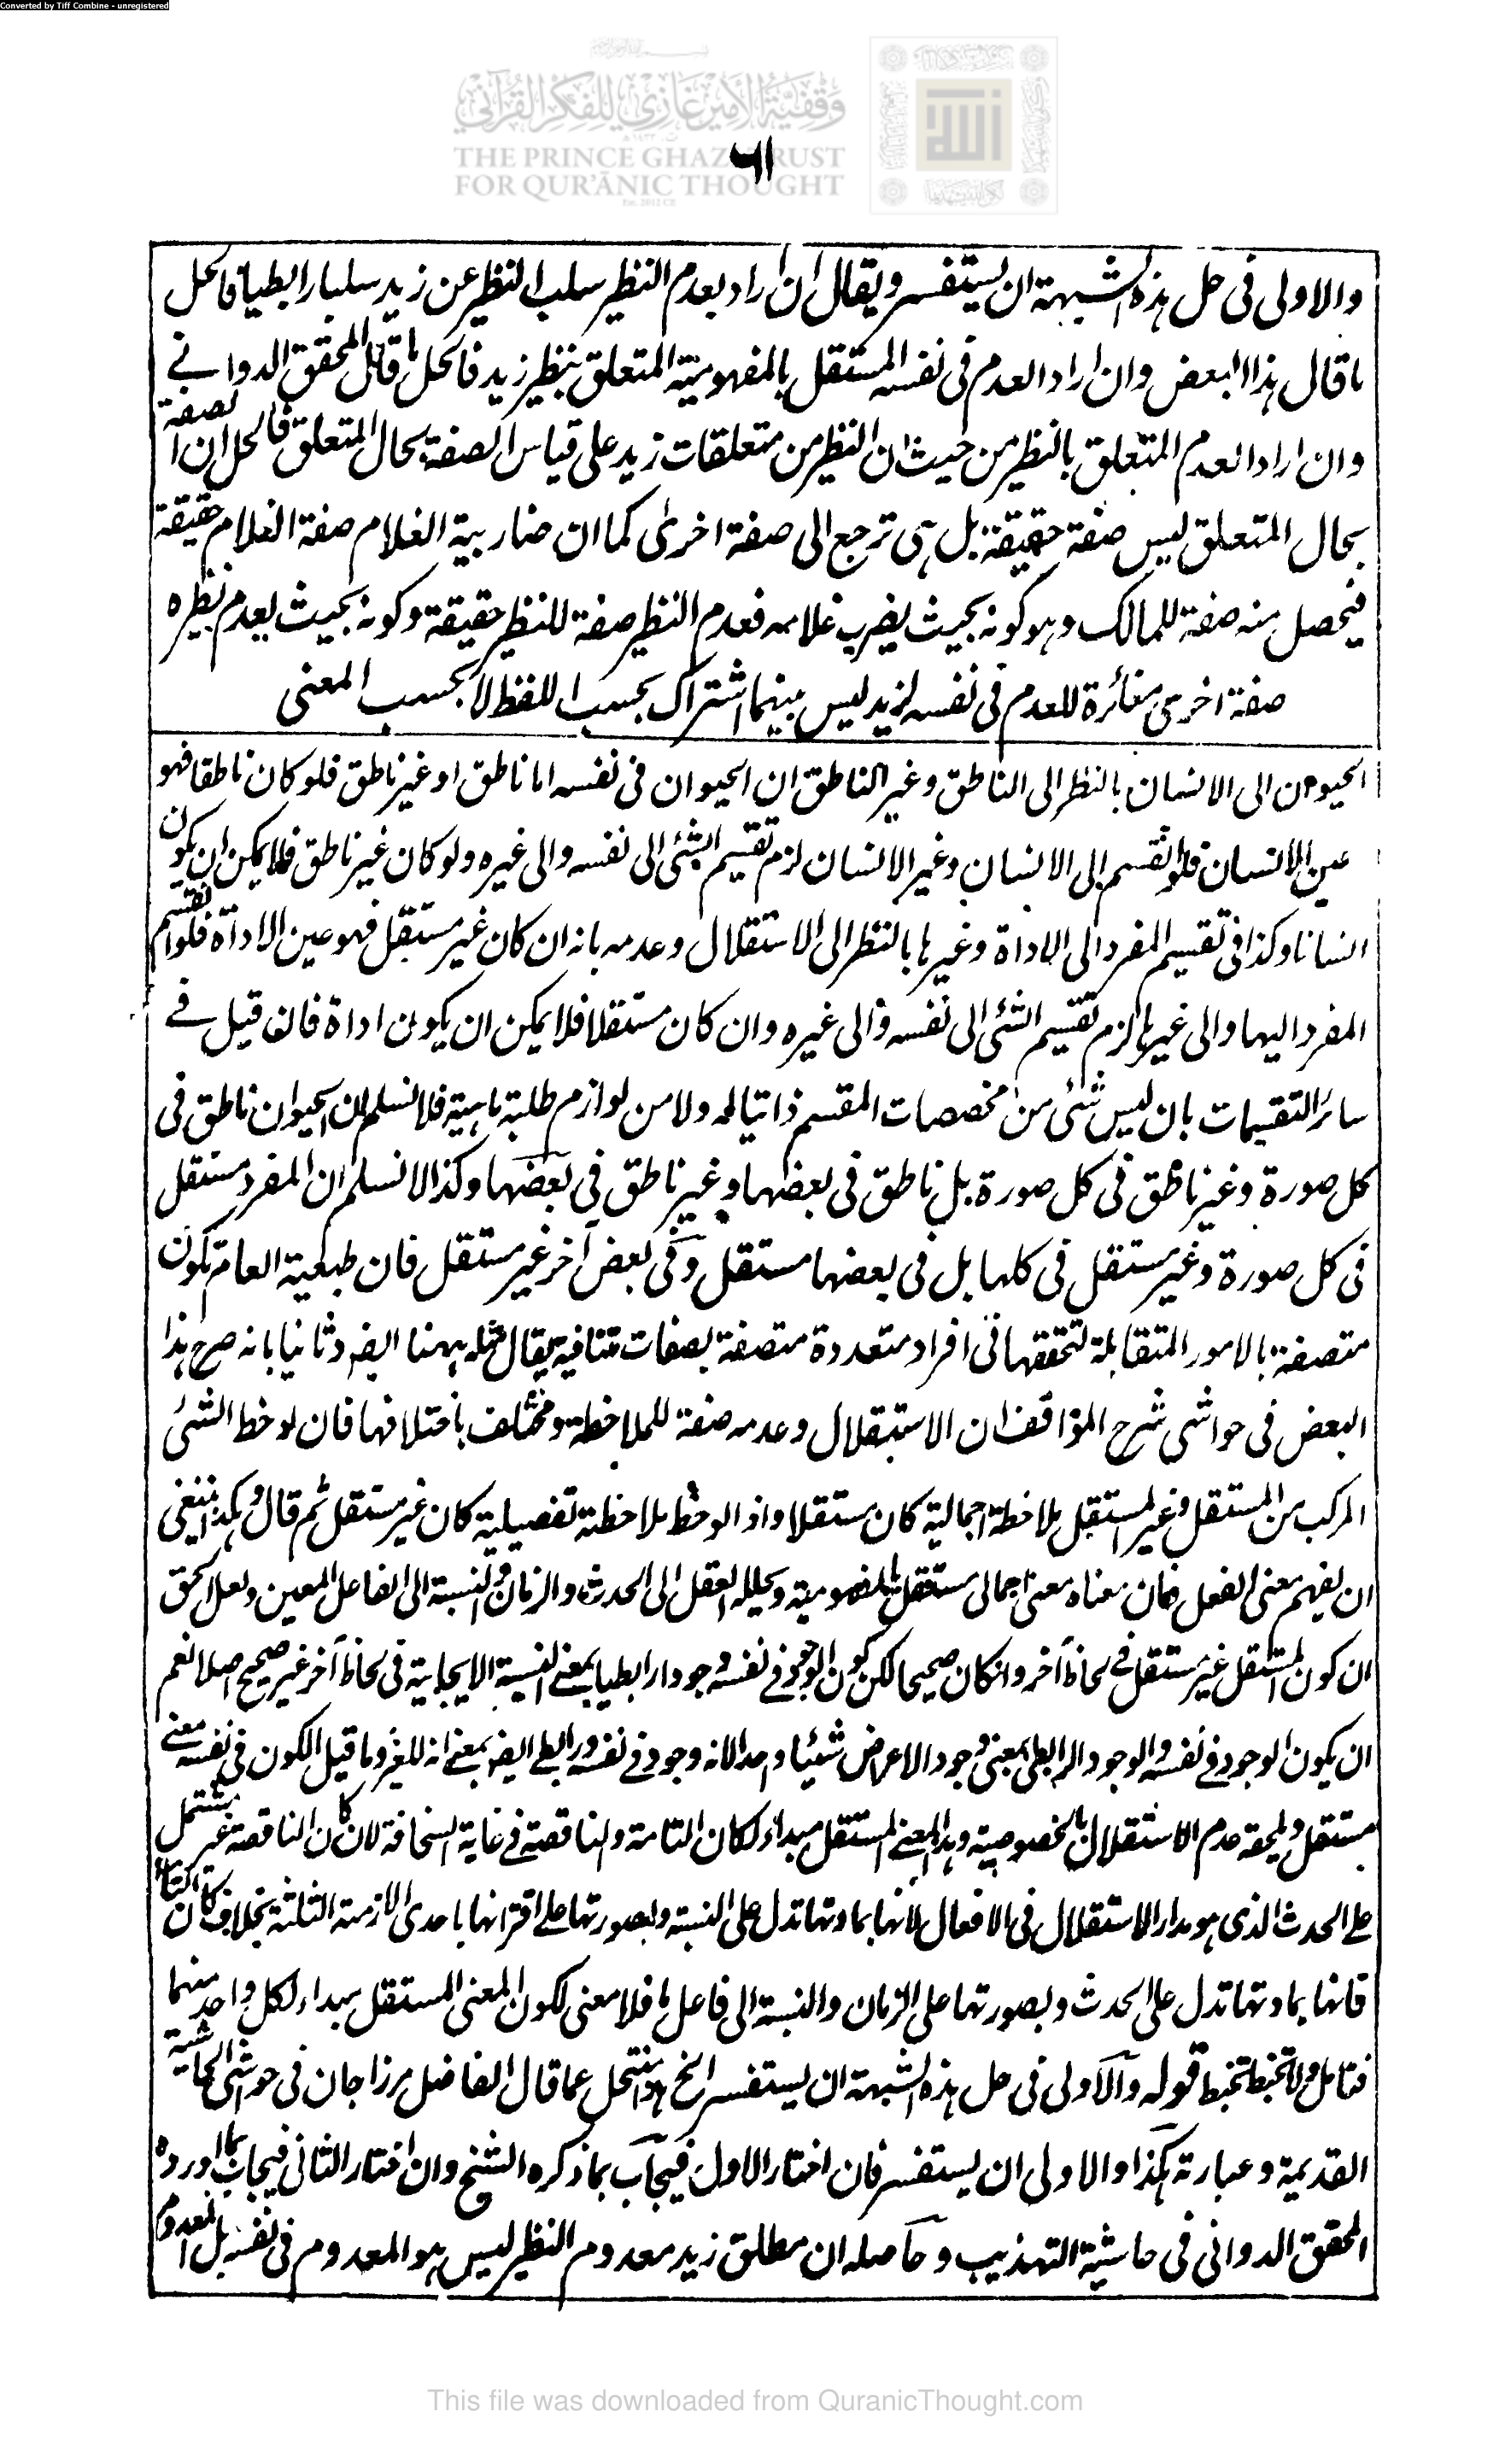 Converted by Tiff Combine - unregistered
THE PRINCE GHAZI TRUST
FOR QUR'ĀNIC THOUGHT
٦١
والاولى فى حل هذه الشبهة ان يستفسر ويقال ان اراد بعدم النظير سلب النظير عن زيد سلبا رابطيا فالحل
ما قال هذا البعض وان اراد العدم فى نفسه المستقل بالمفهومية المتعلق بنظير زيد فالحل ما قال المحقق الدوانے
وان اراد العدم المتعلق بالنظير من حيث ان النظير من متعلقات زيد على قياس الصفة بحال المتعلق فالحل ان الصفة
بحال المتعلق ليس صفة حقيقة بل هى ترجع الى صفة اخرى كما ان ضاربية الغلام صفة الغلام حقيقة
فيحصل منه صفة للمالك وهو كونه بحيث يضرب غلامه فعدم النظير صفة للنظير حقيقة وكونه بحيث يعدم نظيره
صفة اخرى مغائرة للعدم فى نفسه لزيد ليس بينهما اشتراك بحسب اللفظ لا بحسب المعنى
الحيوان الى الانسان بالنظر الى الناطق وغير الناطق ان الحيوان فى نفسه اما ناطق او غير ناطق فلو كان ناطقا فهو
عين الانسان فلو انقسم الى الانسان وغير الانسان لزم تقسيم الشئ الى نفسه والى غيره ولو كان غير ناطق فلا يمكن ان يكون
انسانا وكذا فى تقسيم المفرد الى الاداة وغيرها بالنظر الى الاستقلال وعدمه بانه ان كان غير مستقل فهو عين الاداة فلو انقسم
المفرد اليها والى غيرها لزم تقسيم الشئ الى نفسه والى غيره وان كان مستقلا فلا يمكن ان يكون اداة فان قيل فے
سائر التقسيمات بان ليس شئ من مخصصات المقسم ذاتيا له ولا من لوازم ماهية فلا نسلم ان الحيوان ناطق فى
كل صورة وغير ناطق فى كل صورة بل ناطق فى بعضها وغير ناطق فى بعضها وكذا لا نسلم ان المفرد مستقل
فى كل صورة وغير مستقل فى كلها بل فى بعضها مستقل وفى بعض آخر غير مستقل فان طبعية العام تكون
متصفة بالامور المتقابلة لتحققها فى افراد متعددة متصفة بصفات متنافية يقال مثله ههنا ايضا وثانيا بانه صرح هذا
البعض فى حواشى شرح المواقف ان الاستقلال وعدمه صفة للملاحظة ومختلف باختلافها فان لوحظ الشئ
المركب من المستقل وغير المستقل بملاحظة اجمالية كان مستقلا واذا لوحظ بملاحظة تفصيلية كان غير مستقل ثم قال وهكذا ينبغى
ان يفهم معنى الفعل فان معناه معنى اجمالى مستقل بالمفهومية ويحلله العقل الى الحدث والزمان والنسبة الى الفاعل المعين ولعل الحق
ان كون المستقل غير مستقل فى لحاظ آخر وان كان صحيحا لكن كون الوجود فے نفسه وجودا رابطيا بمعنى النسبة الايجابية فى لحاظ آخر غير صحيح اصلا نعم
ان يكون الوجود فے نفسه والوجود الرابطى بمعنى وجود الاعراض شيئا واحدا لانه وجود فے نفسه ورابطے ايضا بمعنے انه للغير وما قيل الكون فى نفسه معنے
مستقل ويلحقه عدم الاستقلال بالخصوصية وهذا المعنے المستقل مبداء لكان التامة والناقصة فے غاية السخافة لان كان الناقصة غير مشتمل
علے الحدث الذى هو مدار الاستقلال فى الافعال لانها بمادتها تدل على النسبة وبصورتها علے اقترانها باحدى الازمنة الثلثة بخلاف كان التامة
فانها بمادتها تدل على الحدث وبصورتها على الزمان والنسبة الى فاعل ما فلا معنى لكون المعنى المستقل مبداء لكل واحد منهما
فتامل ولا تخبط تخبط قوله والاولى فى حل هذه الشبهة ان يستفسر الخ هذا منتحل عما قال الفاضل مرزا جان فى حواشى الحاشية
القديمة وعبارته هكذا والاولى ان يستفسر فان اختار الاول فيجاب بما ذكره الشيخ وان اختار الثانى فيجاب بما اورده
المحقق الدوانى فى حاشية التهذيب وحاصله ان مطلق زيد معدوم النظير ليس هو المعدوم فى نفسه بل المعدوم
This file was downloaded from QuranicThought.com